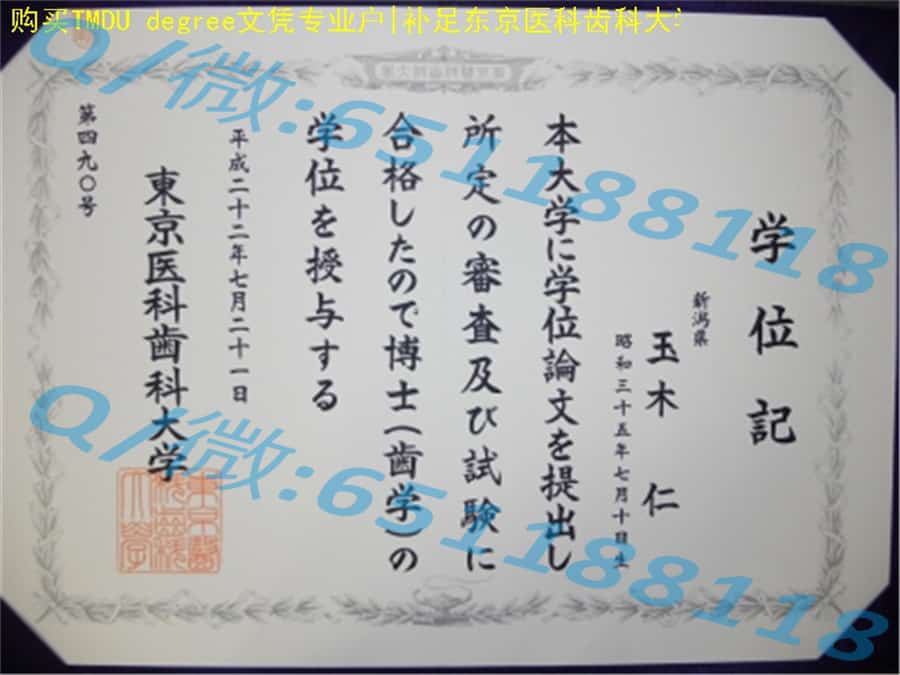 购买TMDU degree文凭专业户|补足东京医科齿科大学
Q/微:65118811 8
学位記
新潟県
玉木 仁
昭和三十五年七月十日生
本大学に学位論文を提出し
所定の審査及び試験に
合格したので博士(歯学)の
学位を授与する
平成二十二年七月二十一日
東京医科歯科大学
第四九〇号
Q/微:651188118